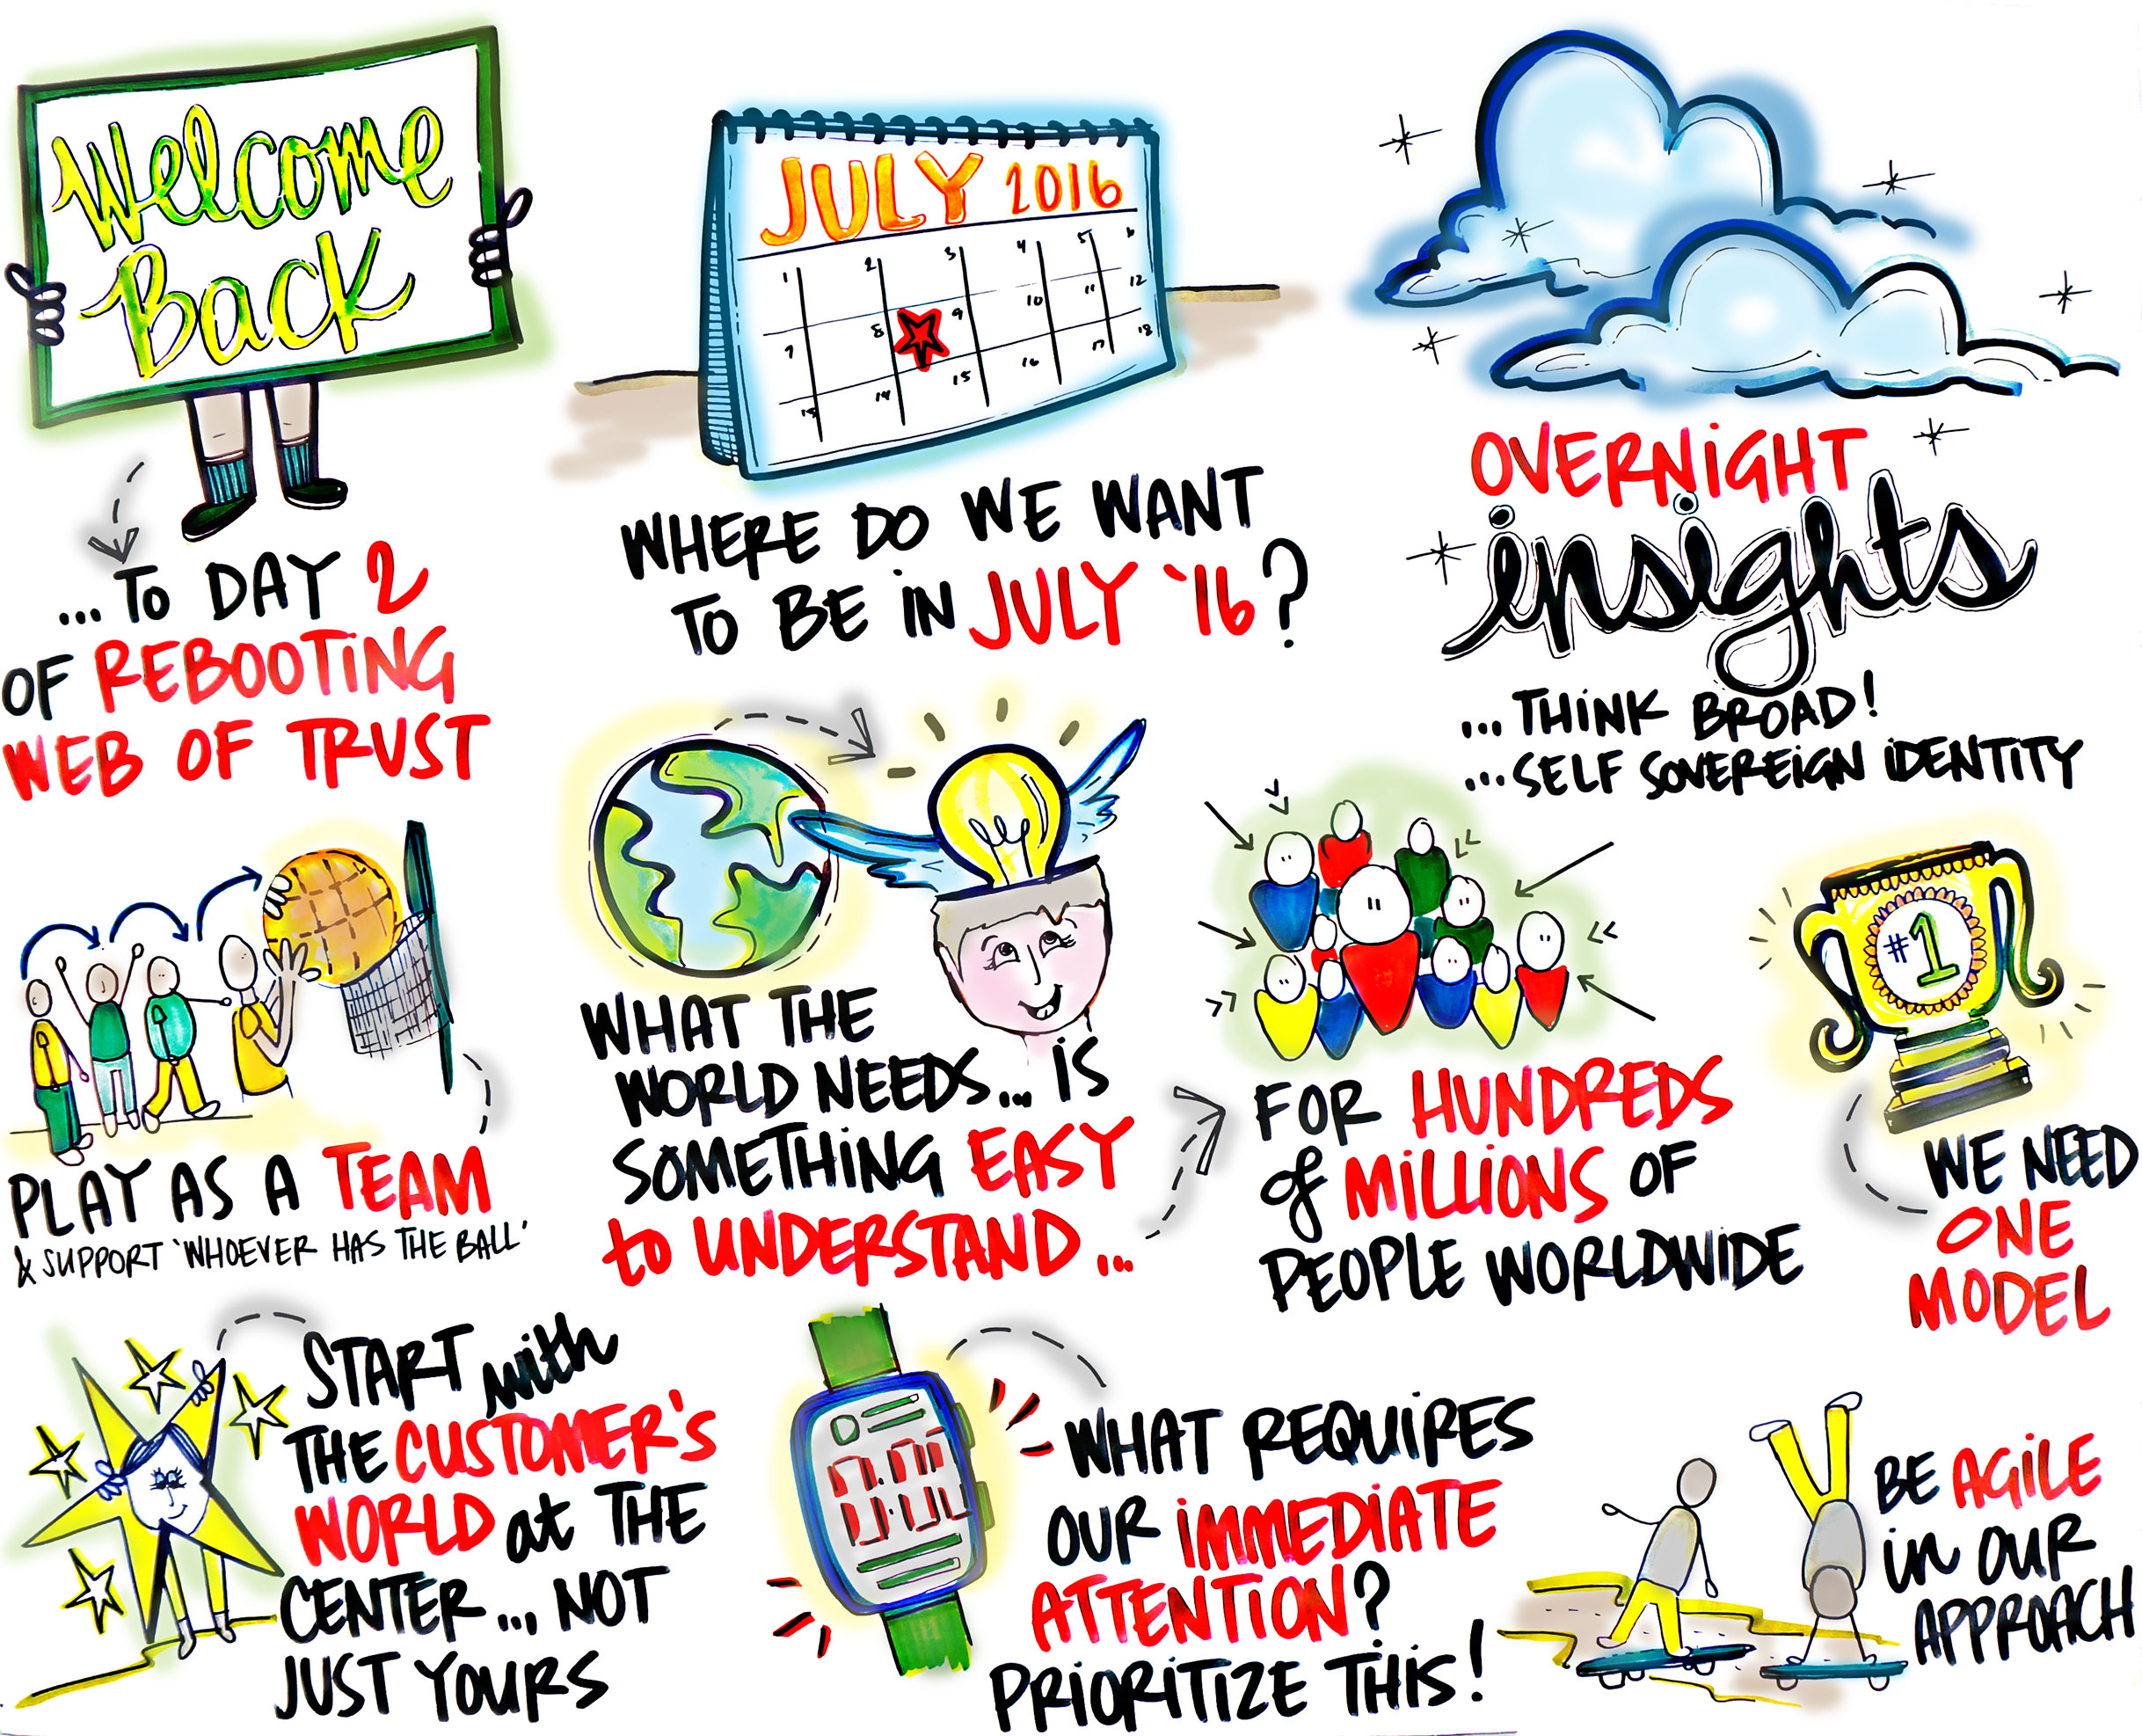 Welcome
Back
...To DAY 2
OF REBOOTING
WEB OF TRUST
JULY 2016
1 2 3 4 5 6
7 8 9 10 11 12
13 14 15 16 17 18
WHERE DO WE WANT
TO BE IN JULY '16?
OVERNIGHT
insights
... THINK BROAD!
... SELF SOVEREIGN IDENTITY
PLAY AS A TEAM
& SUPPORT 'WHOEVER HAS THE BALL'
WHAT THE
WORLD NEEDS... IS
SOMETHING EASY
to UNDERSTAND...
FOR HUNDREDS
of MILLIONS OF
PEOPLE WORLDWIDE
#1
WE NEED
ONE
MODEL
START with
THE CUSTOMER'S
WORLD at THE
CENTER... NOT
JUST YOURS
WHAT REQUIRES
OUR IMMEDIATE
ATTENTION?
PRIORITIZE THIS!
BE AGILE
in OUR
APPROACH